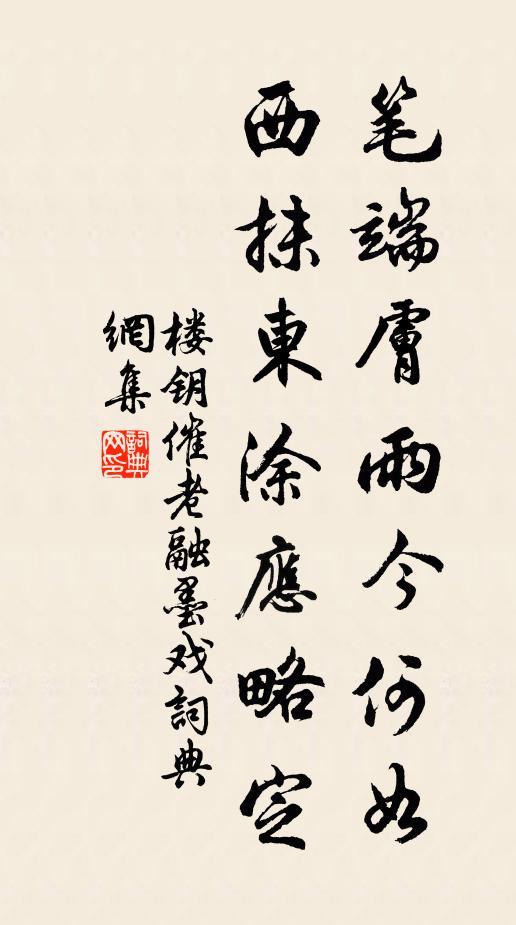 笔端膚雨今何如
西抹東涂應略定
楼钥催老融墨戏詞典
網集
詞典網印